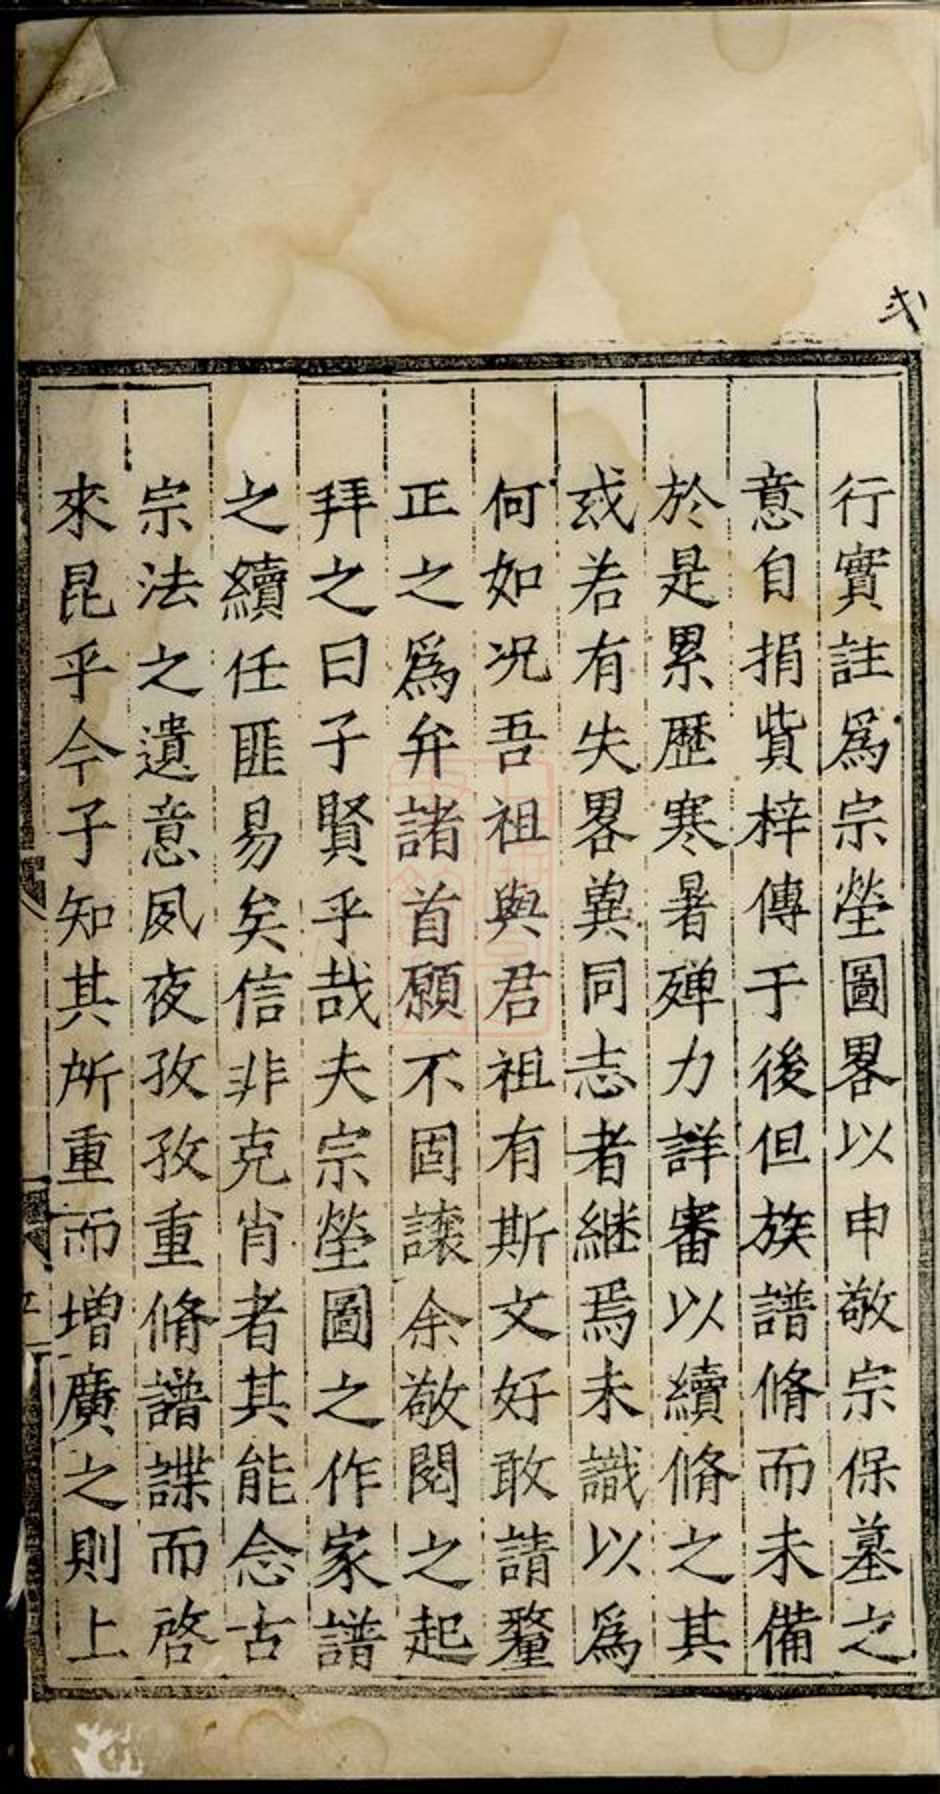 行實註爲宗塋圖畧以申敬宗保墓之
意自捐貲梓傳于後但族譜脩而未備
於是累歷寒暑殫力詳審以續脩之其
或若有失畧兾同志者継焉未識以爲
何如况吾祖與君祖有斯文好敢請釐
正之爲弁諸首願不固讓余敬閱之起
拜之曰子賢乎哉夫宗塋圖之作家譜
之續任匪易矣信非克肖者其能念古
宗法之遺意夙夜孜孜重脩譜諜而啓
來昆乎今子知其所重而增廣之則上